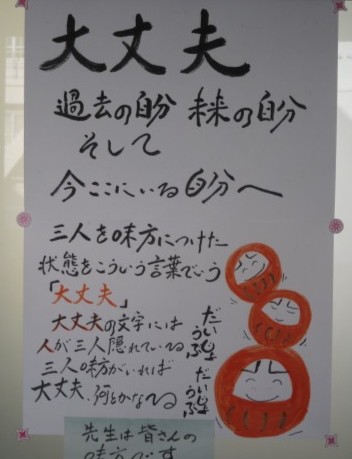 大丈夫
過去の自分 未来の自分
そして
今ここにいる自分へ
三人を味方につけた
状態をこういう言葉でいう
「大丈夫」
大丈夫の文字には
人が三人隠れている
三人味方がいれば
大丈夫、何とかなる
だいじょうぶ
だいじょうぶ
先生は皆さんの
味方です